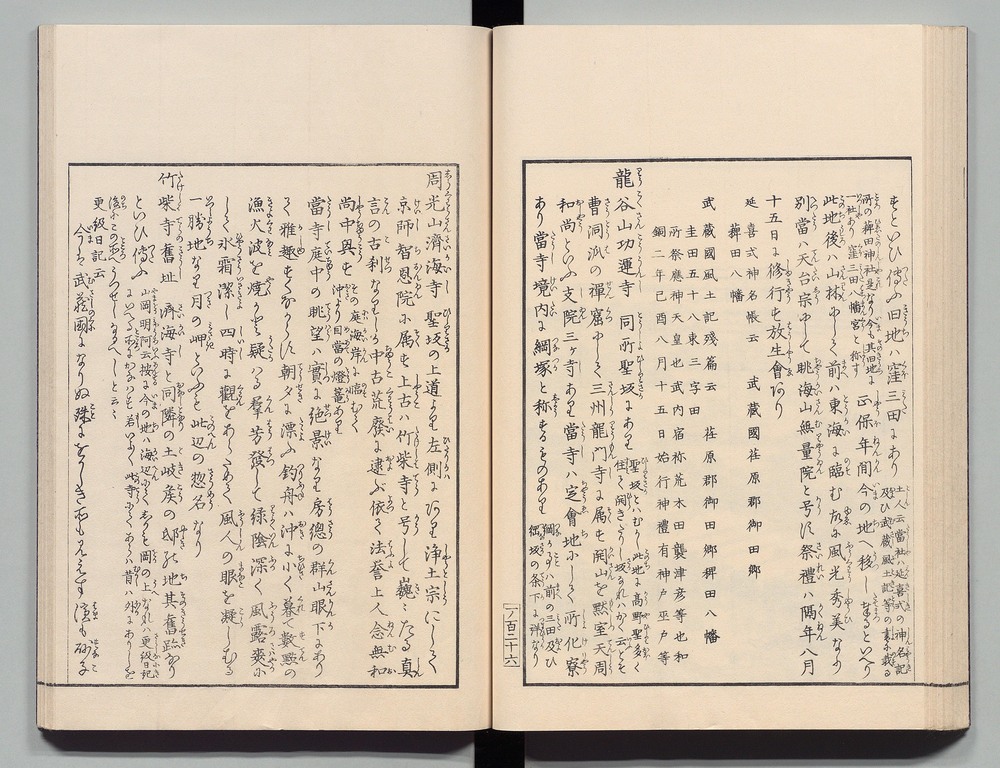 もといひ傳ふ旧地ハ窪三田にあり
土人云當社ハ延喜式の神名記
及ひ武蔵風土記等の書に載る
所の薭田神社是なり今も其旧地に
社ありて窪三田八幡宮と称す
正保年間今の地へ移しまゐらすといへり
此地後ハ山林にして前ハ東海に臨む故に風光秀美なり
別當ハ天台宗にして眺海山無量院と号す祭禮ハ隔年八月
十五日に修行も放生會あり
延喜式神名帳云 武蔵國荏原郡御田郷
薭田八幡
武蔵國風土記残篇云 荏原郡御田郷稗田八幡
圭田五十八束三字田
所祭應神天皇也武内宿祢荒木田襲津彦等也和
銅二年己酉八月十五日始行神禮有神戸巫戸等
龍谷山功運寺 同所聖坂にあり
聖坂といへるハむかし此地に高野聖多く
住て開きたりし坂なれハかく云とも
曹洞派の禪窟にして三州龍門寺に属す開山を黙室天周
和尚といふ支院三ヶ寺あり當寺ハ芝會地にして所化寮
あり當寺境内に綱塚と称するものあり
綱か事ハ前の三田及ひ
綱坂の条下に弁せり
一ノ百二十六
周光山濟海寺 聖坂の上道より左側にあり浄土宗にして
京師智恩院に属す上古ハ竹柴寺と号して巍々たる真
言の古刹なりしか中古荒廢に逮ふ依て法誉上人念無和
尚中興す
この庭海岸に臨むて
沖より目當の燈籠あり
當寺庭中の眺望ハ實に絶景なり房總の群山眼下にあり
て雅趣すくなからす朝夕に漂ふ釣舟ハ沖に小く暮て數點の
漁火波を焼かと疑ハる群芳發して緑陰深く風露爽に
して氷霜潔し四時の觀をあらためて風人の眼を凝しむる
一勝地なり月の岬といふも此辺の惣名なり
竹柴寺舊址 濟海寺と同隣の土岐矦の邸の地其舊跡なり
といひ傳ふ
山岡明阿云按に今の地ハ海辺にてしかも岡の上なれハ更級日記
にいへる所にかなハす若しくハ此寺にてあらハ昔ハ外にありしを
後にこゝへうつせしなるへしと云々
更級日記云
今ハ武蔵國になりぬ殊にをかしき所も見えす濱も砂子